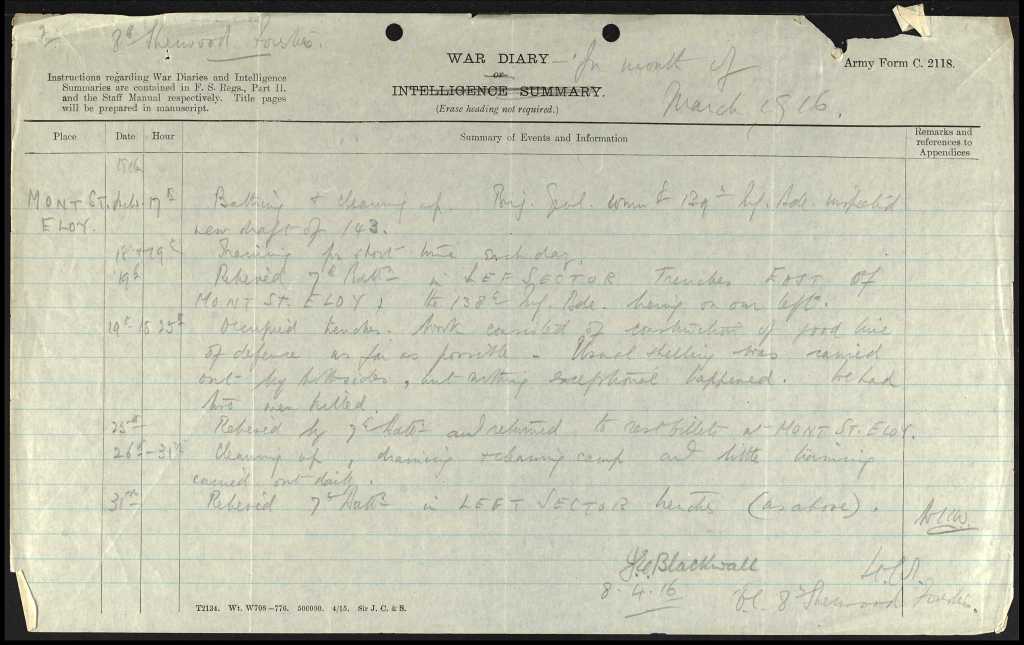 8th Sherwood Foresters.
WAR DIARY
or
INTELLIGENCE SUMMARY.
(Erase heading not required.)
for month of
March 1916.
Army Form C. 2118.
Instructions regarding War Diaries and Intelligence
Summaries are contained in F. S. Regs., Part II.
and the Staff Manual respectively. Title pages
will be prepared in manuscript.
Place Date Hour Summary of Events and Information Remarks and references to Appendices
1916
MONT ST. ELOY. 17th Bathing & cleaning up. Brig. Genl. 139th Inf. Bde. inspected
new draft of 143.
18th-19th Training for short time each day.
19th Relieved 7th Battn in LEFT SECTOR Trenches EAST of
MONT ST. ELOY; the 138th Inf. Bde. being on our left.
19th to 25th Occupied trenches. Work consisted of construction of good line
of defence as far as possible. Usual shelling was carried
out by both sides, but nothing exceptional happened. We had
two men killed.
25th Relieved by 7th Battn and returned to rest billets at MONT ST. ELOY.
26th-31st Cleaning up, draining & cleaning camp and little training
carried out daily.
31st Relieved 7th Battn in LEFT SECTOR trenches (as above).
J.E. Blackwall Lt. Col.
8.4.16 8th Sherwood Foresters.
T2134. Wt. W708-776. 500000. 4/15. Sir J. C. & S.